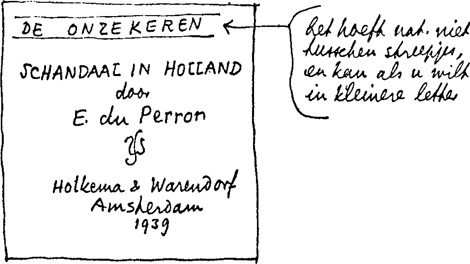 DE ONZEKEREN
SCHANDAAL IN HOLLAND
door
E. du Perron
Holkema & Warendorf
Amsterdam
1939
het hoeft nat. niet
tusschen streepjes,
en kan als u wilt
in kleinere letter